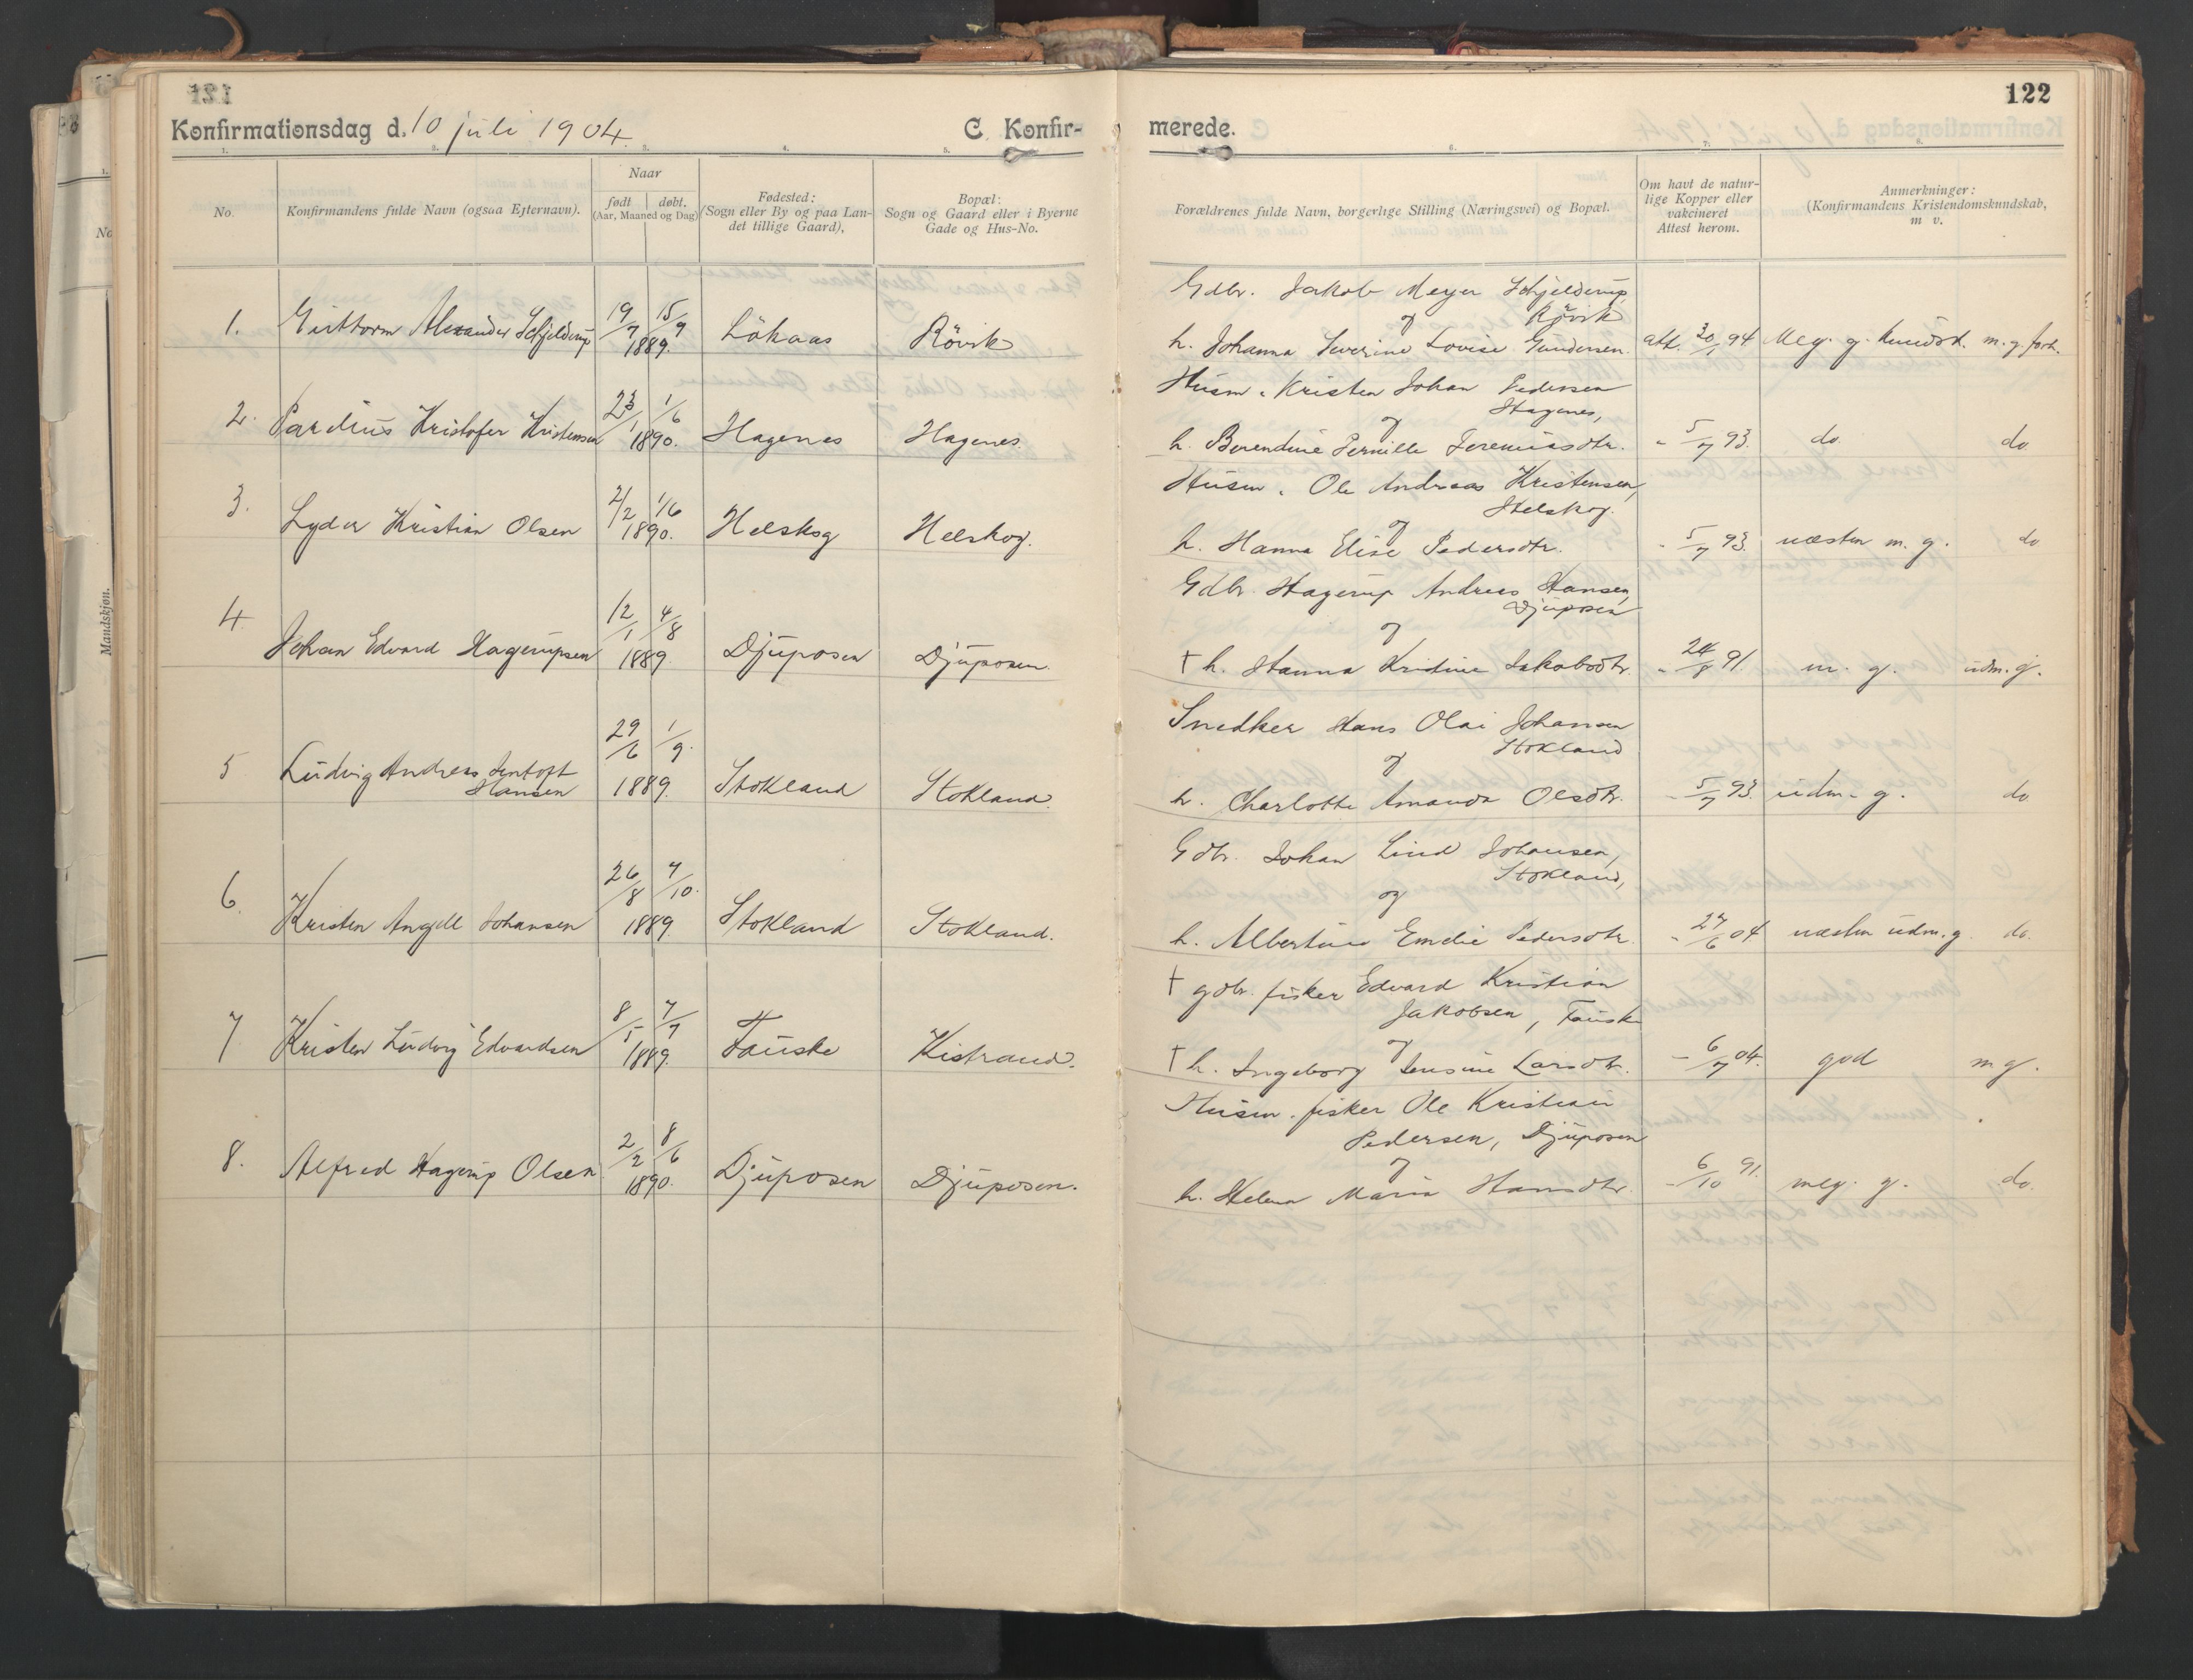 122
Konfirmationsdag d. 10 juli 1904. C. Konfirmerede.
1. 2. 3. 4. 5. 6. 7. 8.
No.
Konfirmandens fulde Navn (ogsaa Efternavn).
Naar
født døbt.
(Aar, Maaned og Dag)
Fødested:
(Sogn eller By og paa Lan-
det tillige Gaard),
Bopæl:
Sogn og Gaard eller i Byerne
Gade og Hus-No.
Forældrenes fulde Navn, borgerlige Stilling (Næringsvei) og Bopæl.
Om havt de natur-
lige Kopper eller
vakcineret
Attest herom.
Anmerkninger:
(Konfirmandens Kristendomskundskab,
m v.
1. Guttorm Alexander Schjelderup 19/7 15/9 1889. Løkaas Rövik
Gdbr. Jakob Meyer Schjelderup,
Rövik
og
h. Johanna Severine Lovise Gundersen. att. 30/1 94 Meg. g. kundsk. m. g. forh.
2. Pardius Kristofer Kristensen 23/1 1/6 1890. Hagenes Hagenes.
Husm. Kristen Johan Pedersen
Hagenes,
og
h. Berendine Pernille Jeremiasdtr. - 5/7 93. do. do
3. Lyder Kristian Olsen 2/2 1/6 1890. Helskog Helskog.
Husm. Ole Andreas Kristensen,
Helskog.
og
h. Hanna Elise Pedersdtr. - 5/7 93. næsten m. g. do
4 Johan Edvard Hagerupsen 12/1 4/8 1889. Djuposen Djuposen.
Gdbr. Hagerup Andreas Hansen,
Djuposen
og
† h. Hanna Kristine Jakobsdtr. - 24/8 91. m. g. udm. g.
5 Ludvig Andreas Jentoft
Hansen 29/6 1/9. 1889. Stokland Stokland.
Snedker Hans Olai Johansen
Stokland
og
h. Charlotte Amanda Olsdtr. - 5/7 93. udm. g. do
6. Kristen Angell Johansen 26/8 7/10. 1889. Stokland Stokland.
Gdbr. Johan Lind Johansen,
Stokland,
og
h. Albertine Emelie Pedersdtr. - 27/6 04 næsten udm. g. do.
7 Kristen Ludvig Edvardsen 8/5 7/7 1889. Fauske Kistrand.
† gdbr. fisker Edvard Kristian
Jakobsen, Fauske
og
† h. Ingeborg Jensine Larsdtr. - 6/7 04. god m g.
8. Alfred Hagerup Olsen. 2/2 8/6 1890. Djuposen Djuposen.
Husm. fisker Ole Kristian
Pedersen, Djuposen
og
h. Helena Maria Hansdtr. - 6/10 91. meg. g. do.
Mandskjøn.